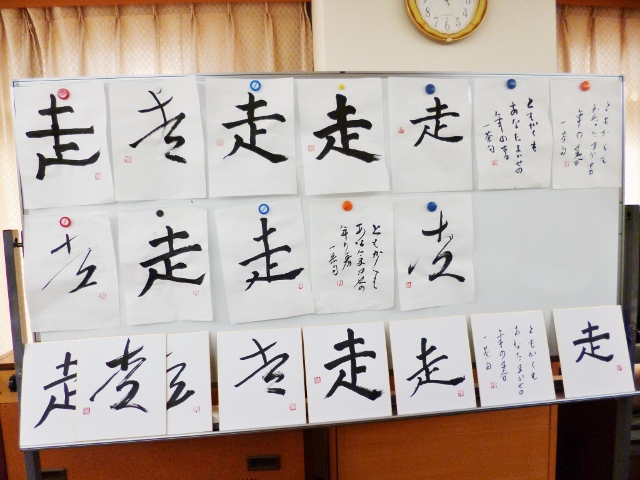 走
走
走
走
走
ともかくも
あなたまかせの
年の暮
一茶句
ともかくも
あなたまかせの
年の暮
一茶句
走
走
走
ともかくも
あなたまかせの
年の暮
一茶句
走
走
走
走
走
走
ともかくも
あなたまかせの
年の暮
一茶句
走